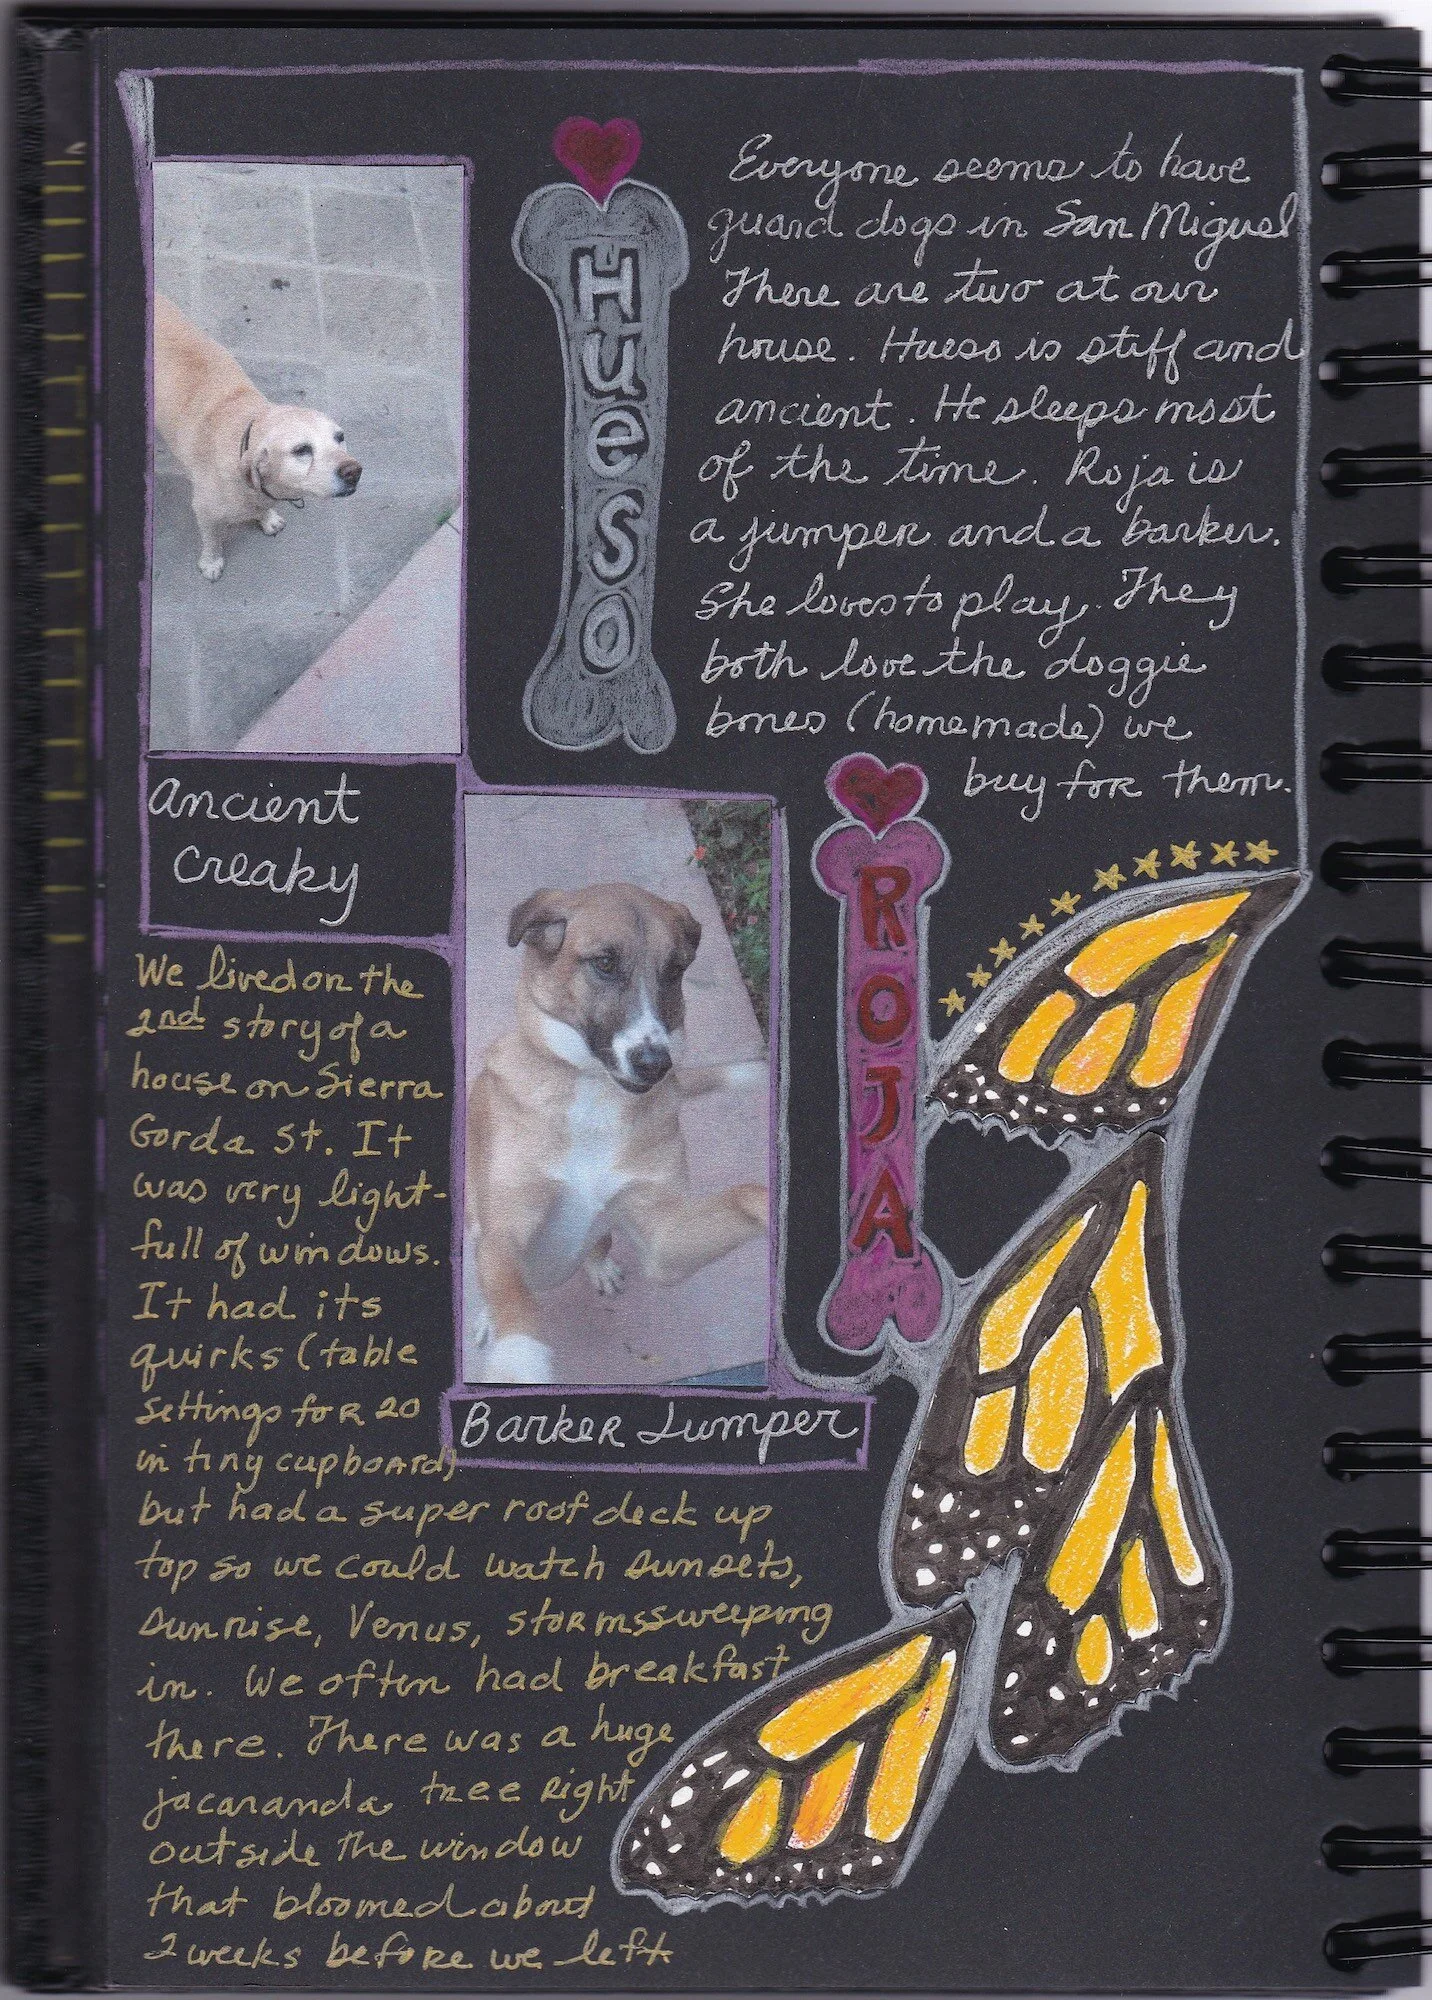 Hueso
Everyone seems to have
guard dogs in San Miguel
There are two at our
house. Hueso is stiff and
ancient. He sleeps most
of the time. Roja is
a jumper and a barker.
She loves to play. They
both love the doggie
bones (homemade) we
buy for them.
Ancient
Creaky
ROJA
Barker Jumper
We lived on the
2nd story of a
house on Sierra
Gorda St. It
was very light-
full of windows.
It had its
quirks (table
settings for 20
in tiny cupboard)
but had a super roof deck up
top so we could watch sunsets,
sunrise, Venus, storms sweeping
in. We often had breakfast
there. There was a huge
jacaranda tree right
outside the window
that bloomed about
2 weeks before we left